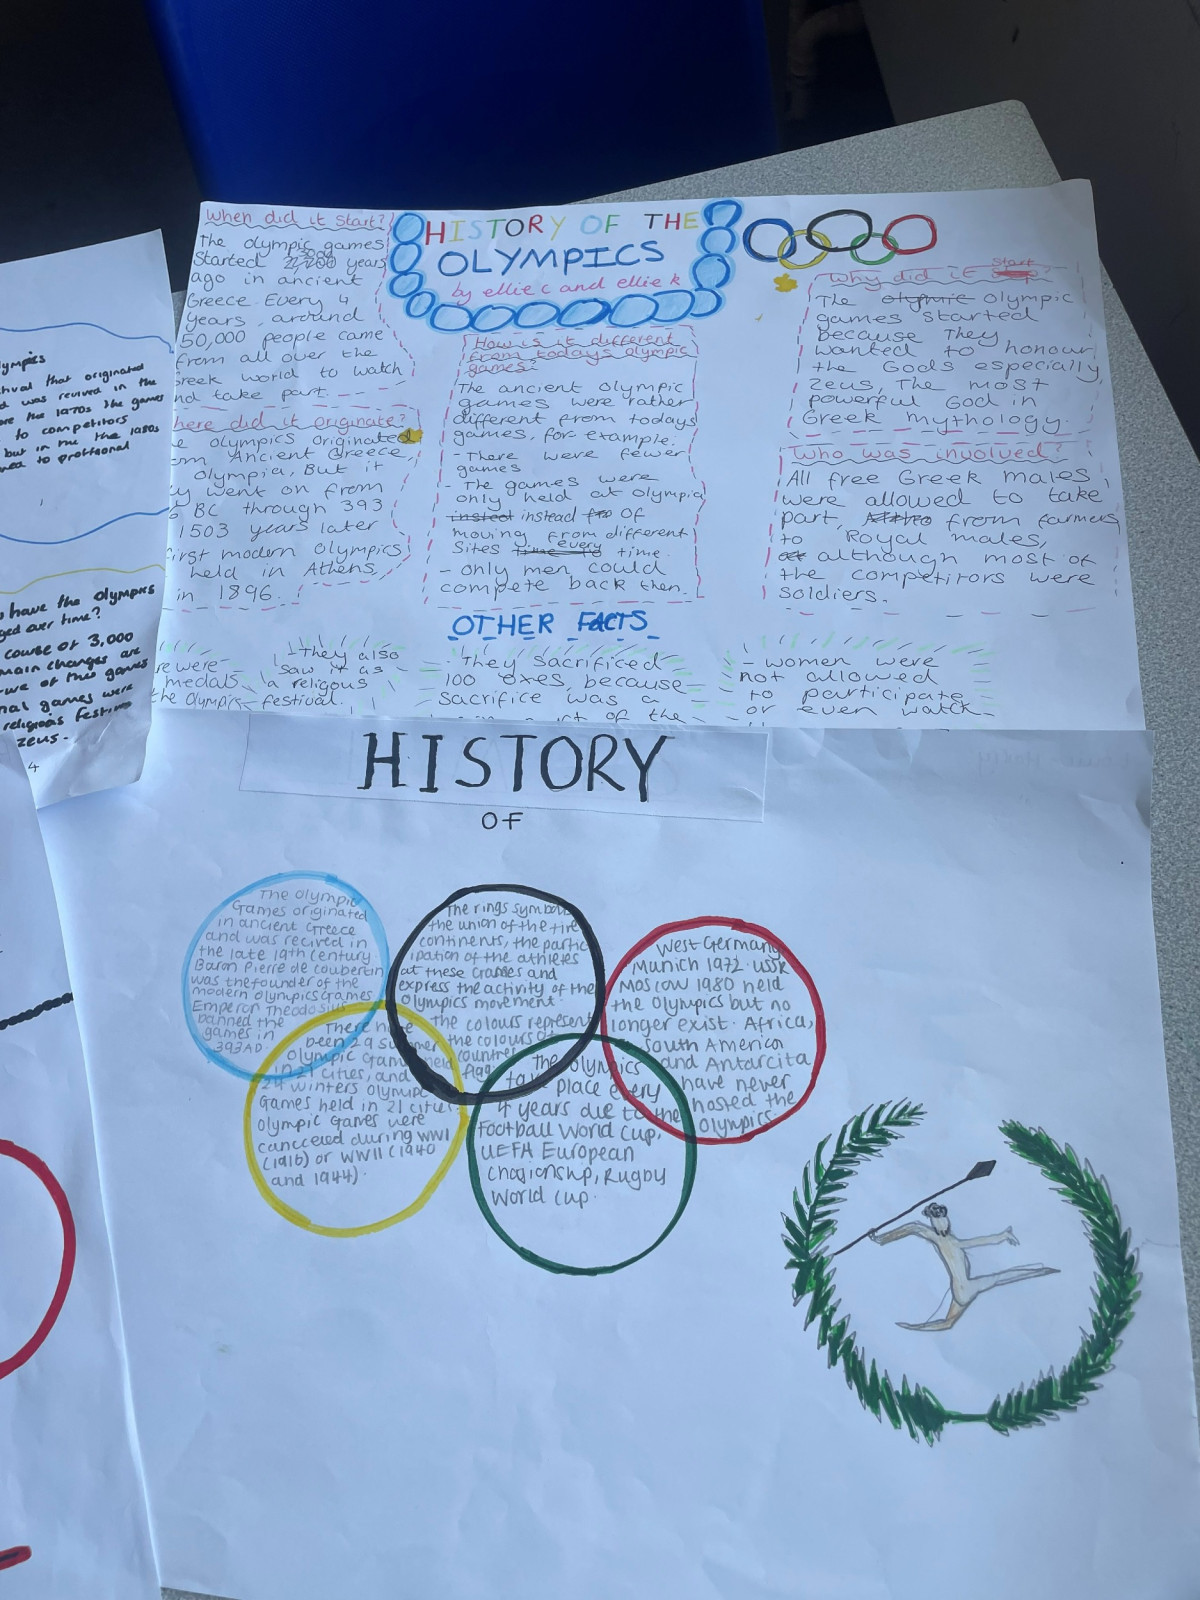 When did it start?
The olympic games
Started years
ago in ancient
Greece. Every 4
years, around
50,000 people came
from all over the
reek world to watch
nd take part.
here did it originate?
e olympics originated
om Ancient Greece
olympia, But it
y went on from
BC through 393
1503 years later
first modern Olympics
held in Athens
in 1896.
HISTORY OF THE
OLYMPICS
by ellie c and ellie k
How is it different
from todays olympic
games:
The ancient olympic
games were rather
different from todays
games, for example:
- There were fewer
games
- The games were
only held at Olympia
insted instead of
moving from different
Sites time every time.
- only men could
compete back then.
Why did it start?
The olympic olympic
games started
because They
wanted to honour
the Gods especially
Zeus, The most
powerful God in
Greek mythology.
Who was involved?
All free Greek males,
were allowed to take
part, from farmers
to Royal males,
although most of
the competitors were
soldiers.
OTHER FACTS
re were
medals
the Olympics
- They also
saw it as
a religous
festival.
- They sacrificed
100 oxes, because
Sacrifice was a
of the
- women were
not allowed
to participate
or even watch
lympics
tival that originated
d was revived in the
ore the 1970s the games
to competitors
but in the the 1980s
ned to proffional
have the olympics
ged over time?
course of 3,000
main changes are
of the games
nal games were
religious festival
zeus.
4
HISTORY
OF
The Olympic
Games originated
in ancient Greece
and was recived in
the late 19th century.
Baron Pierre de coubertin
was the founder of the
modern olympics Games
Emperor Theodosius
banned the
games in
393AD.
The rings symbol
the union of the five
continents, the partic
ipation of the athletes
at these Grames and
express the activity of the
Olympics movement.
The colours represent
the colours of
countries
flag
West Germany
Munich 1972. USSR
Moscow 1980 held
the Olympics but no
longer exist. Africa,
South America
and Antarcita
have never
hosted the
Olympics.
There have
been 29 summer
Olympic Games held
in 21 cities, and
24 winters olympic
Games held in 21 cities.
Olympic Games were
cancceled during WWI
(1916) or WWII (1940
and 1944).
the Olympics
take place every
4 years due to the
Football World Cup,
UEFA European
Chagionship, Rugby
World Cup.